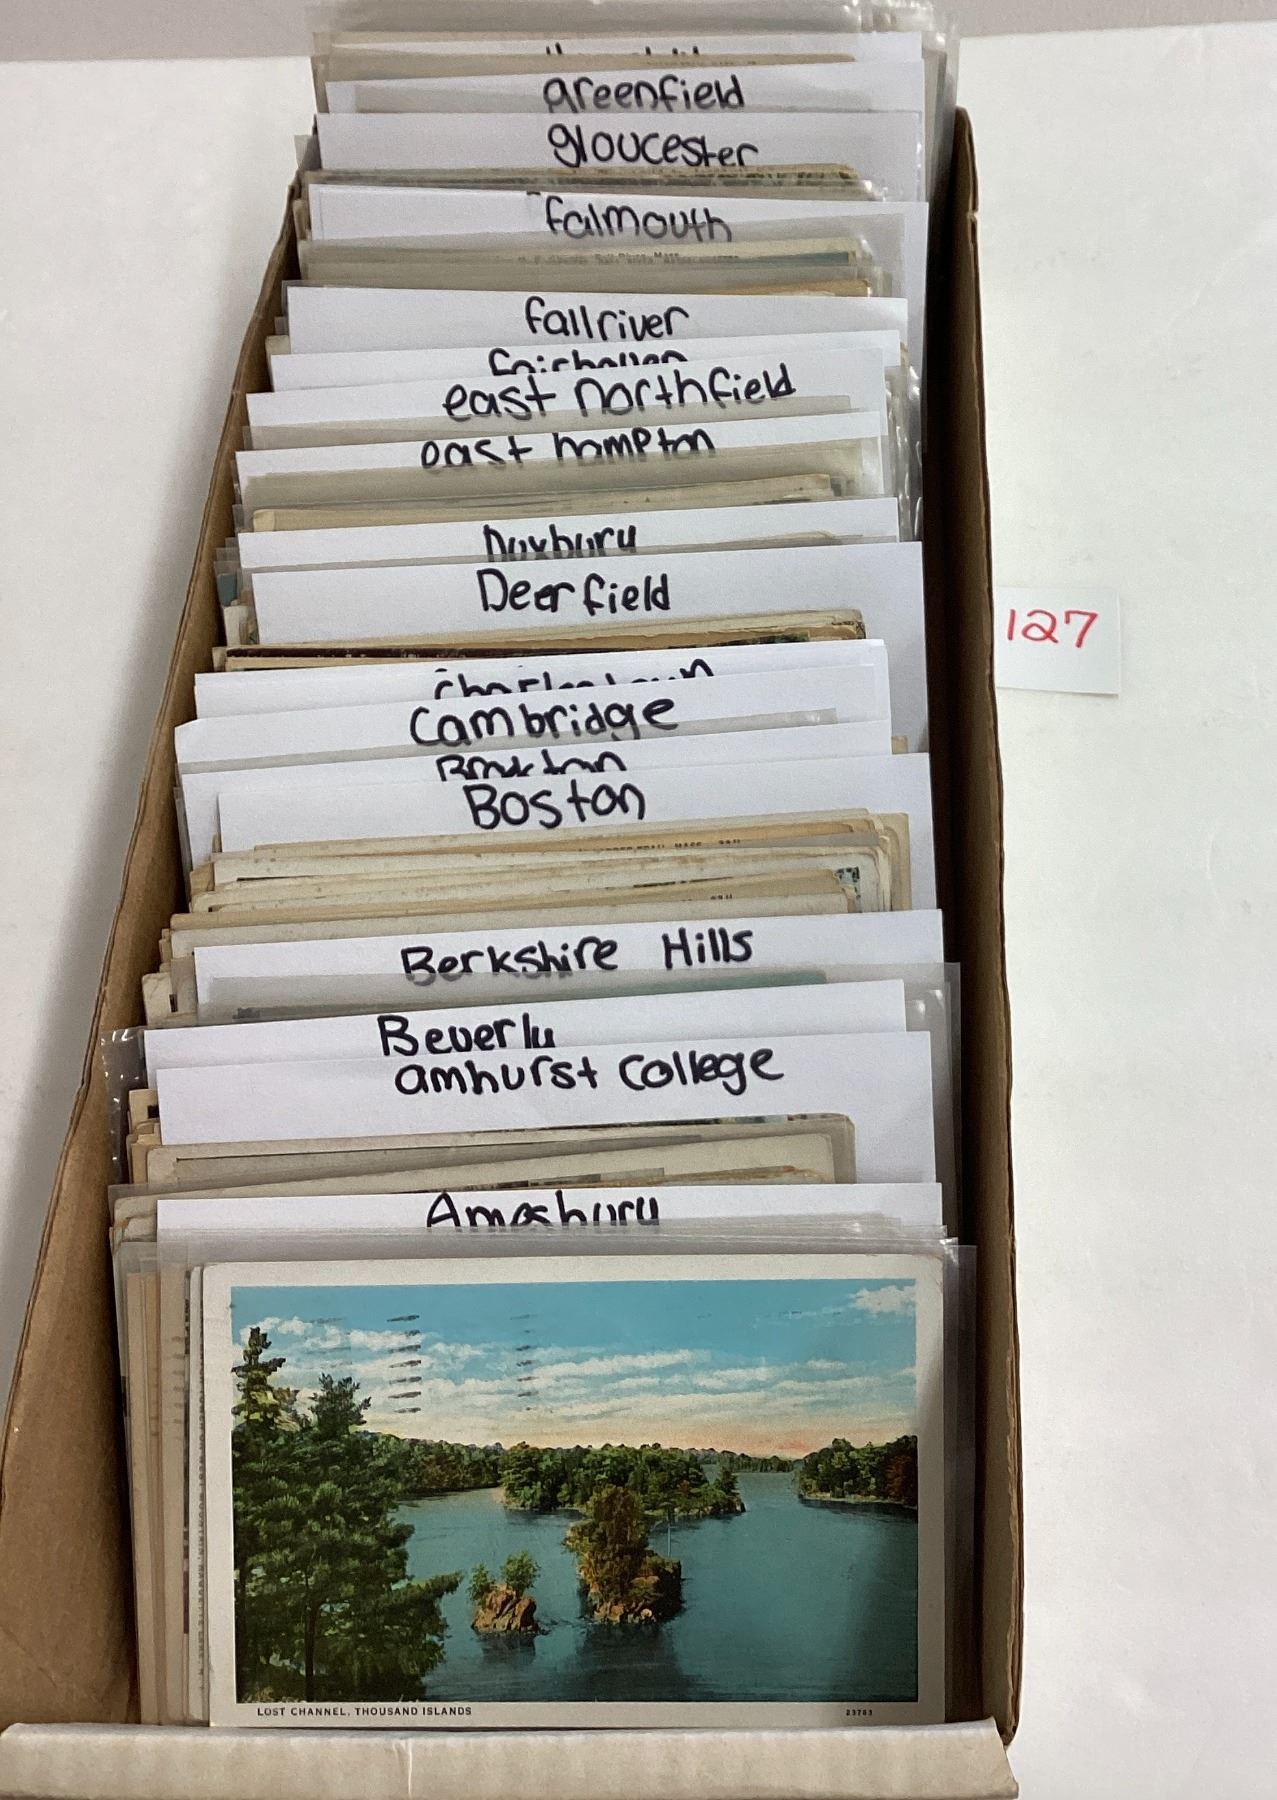 greenfield
gloucester
falmouth
fallriver
fairhaven
east northfield
east hampton
Duxbury
Deerfield
127
Charlestown
Cambridge
Brockton
Boston
Berkshire Hills
Beverly
amhurst College
Amesbury
LOST CHANNEL, THOUSAND ISLANDS
23783